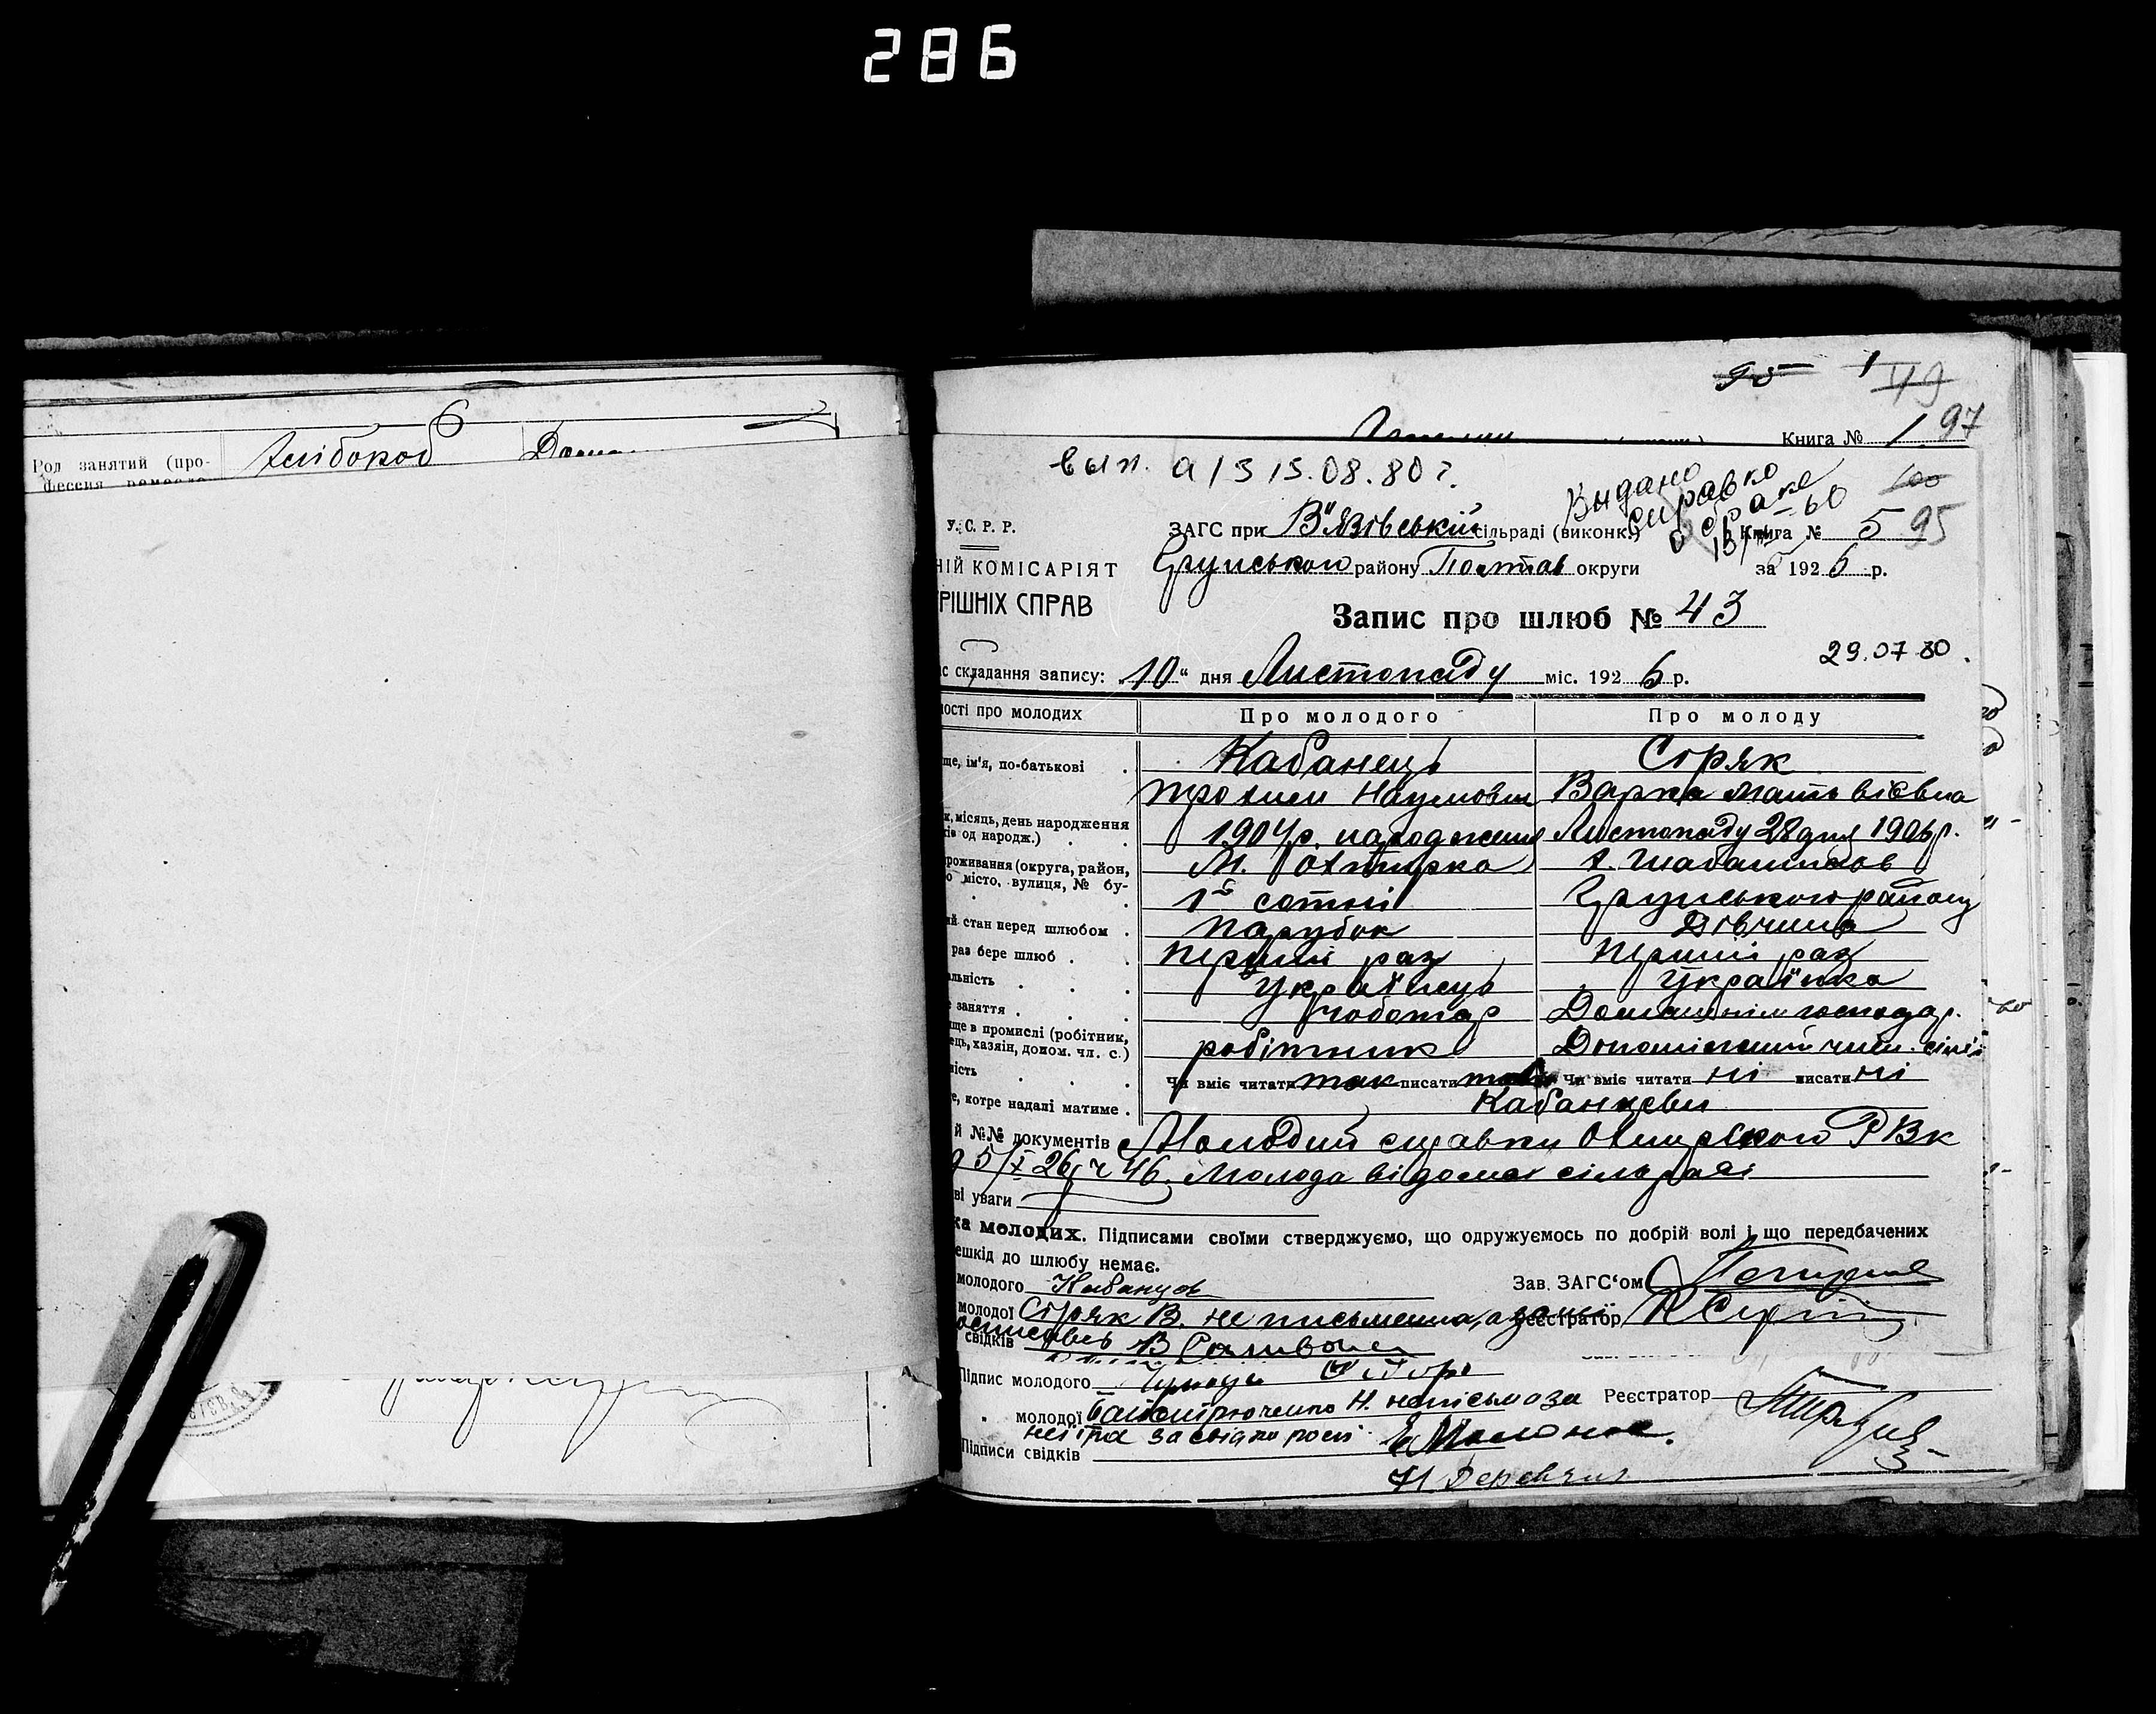 286
Род занятий (про-
фессия ремесло
Хлібороб
1
97
Книга № 1
вып. а/з 15.08.80 г.
Видано
справко
о браке
100
У.С.Р.Р.
ЗАГС при В'язівській сільраді (виконк.)
Книга № 5 95
НІЙ КОМІСАРІЯТ
Грунського району Полтав округи
за 1926 р.
РІШНІХ СПРАВ
Запис про шлюб № 43
29.07 80.
с складання запису: 10 " дня Листопаду міс. 1926 р.
ності про молодих
Про молодого
Про молоду
ще, ім'я, по-батькові
Кабанець
Сіряк
Наумович
Варка Матьвієвна
к, місяць, день народження
ків од народж.)
1904 р. народження
Листопаду 28 дня 1906 р.
роживання (округа, район,
о місто, вулиця, № бу-
М. Охтирка
х.
1ї сотні
Грунського району
ий стан перед шлюбом
Парубок
Дівчина
раз бере шлюб
Перший раз
Перший раз
альність
Українець
Українка
е заняття
чоботар
Домашнім господар.
ище в промислі (робітник,
ець, хазяїн, допом. чл. с.)
робітник
Допоміжний член. сім'ї
ність
Чи вміє читати так писати
Чи вміє читати ні писати ні
е, котре надалі матиме
Кабанцеви
й №№ документів Молодий справки Охтирского РВк
5/X 26 р ч 46. Молода відома сільраді
ві уваги
ка молодих. Підписами своїми стверджуємо, що одружуємось по добрій волі і що передбачених
ешкід до шлюбу немає.
молодого Кабанцов
Зав. ЗАГС'ом
молодої Сіряк В. не письменна, а за неї
Реєстратор
свідків В
Підпис молодого
молодої Н.
Реєстратор
Підписи свідків